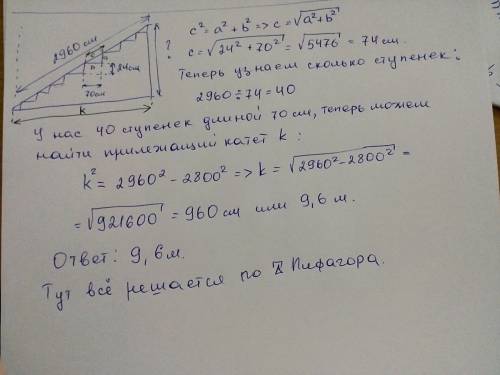 2960 см
24см
70см
k
?
c² = a² + b² => c = √a²+b²
c = √24² + 70² = √5476 = 74 см.
Теперь узнаем сколько ступенек:
2960 ÷ 74 = 40
У нас 40 ступенек длиной 70 см, теперь можем
найти прилежащий катет k :
k² = 2960² - 2800² => k = √2960² - 2800² =
= √921600 = 960 см или 9,6 м.
Ответ: 9,6м.
Тут всё решается по Пифагора.